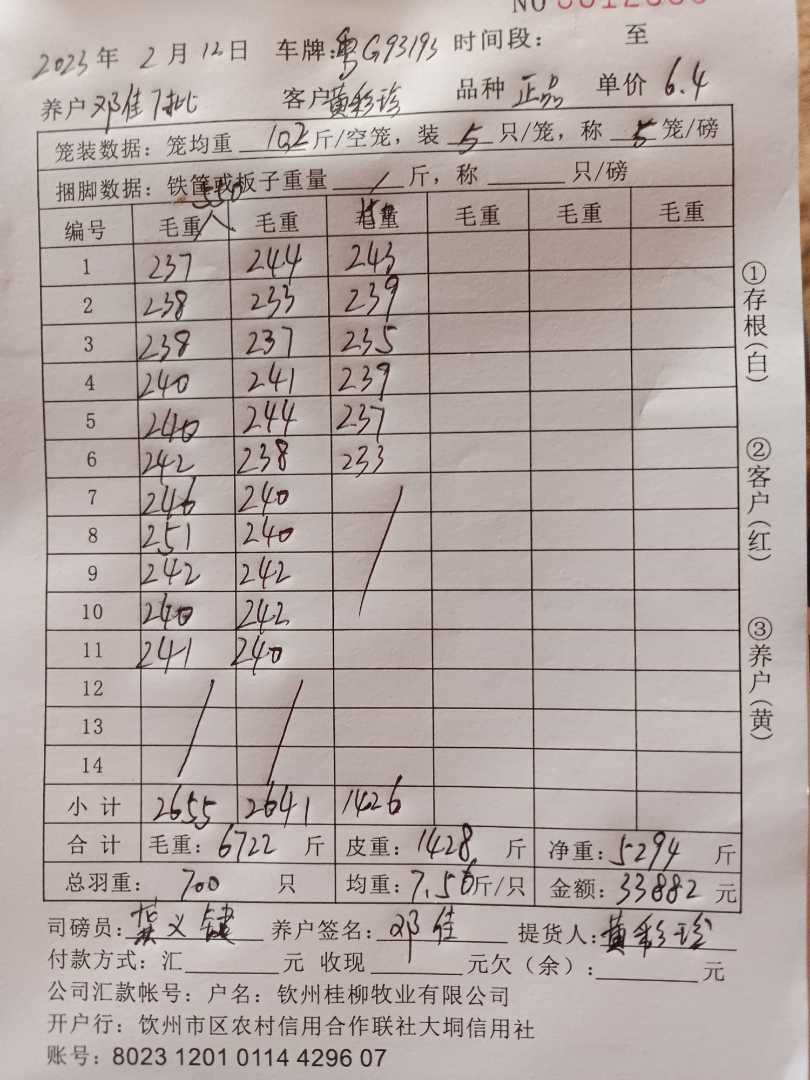 NO
2023年 2月 12日 车牌:粤G93193 时间段: 至
养户 邓佳7批 客户 黄彩珍 品种 正品 单价 6.4
笼装数据: 笼均重 10.2 斤/空笼, 装 5 只/笼, 称 5 笼/磅
捆脚数据: 铁筐或板子重量 / 斤, 称 只/磅
550 150
编号 毛重 毛重 毛重 毛重 毛重 毛重
1 237 244 243
2 238 233 239
3 238 237 235
4 240 241 239
5 240 244 237
6 242 238 233
7 246 240
8 251 240
9 242 242
10 240 242
11 241 240
12
13
14
小计 2655 2641 1426
合计 毛重: 6722 斤 皮重: 1428 斤 净重: 5294 斤
总羽重: 700 只 均重: 7.56 斤/只 金额: 33882 元
司磅员: 龚义键 养户签名: 邓佳 提货人: 黄彩珍
付款方式: 汇 元 收现 元欠(余): 元
公司汇款帐号: 户名: 钦州桂柳牧业有限公司
开户行: 钦州市区农村信用合作联社大垌信用社
账号: 8023 1201 0114 4296 07
①存根(白)
②客户(红)
③养户(黄)